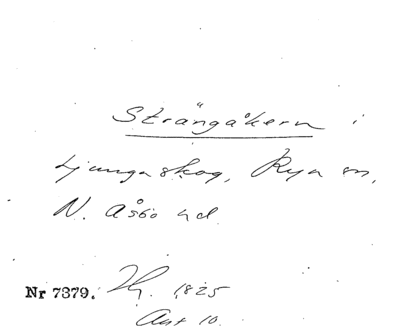 Strängåkern i
Ljungaskog, Rya sn,
N. Åsbo hd
Nr 7379. Hg. 1825
Akt 10.